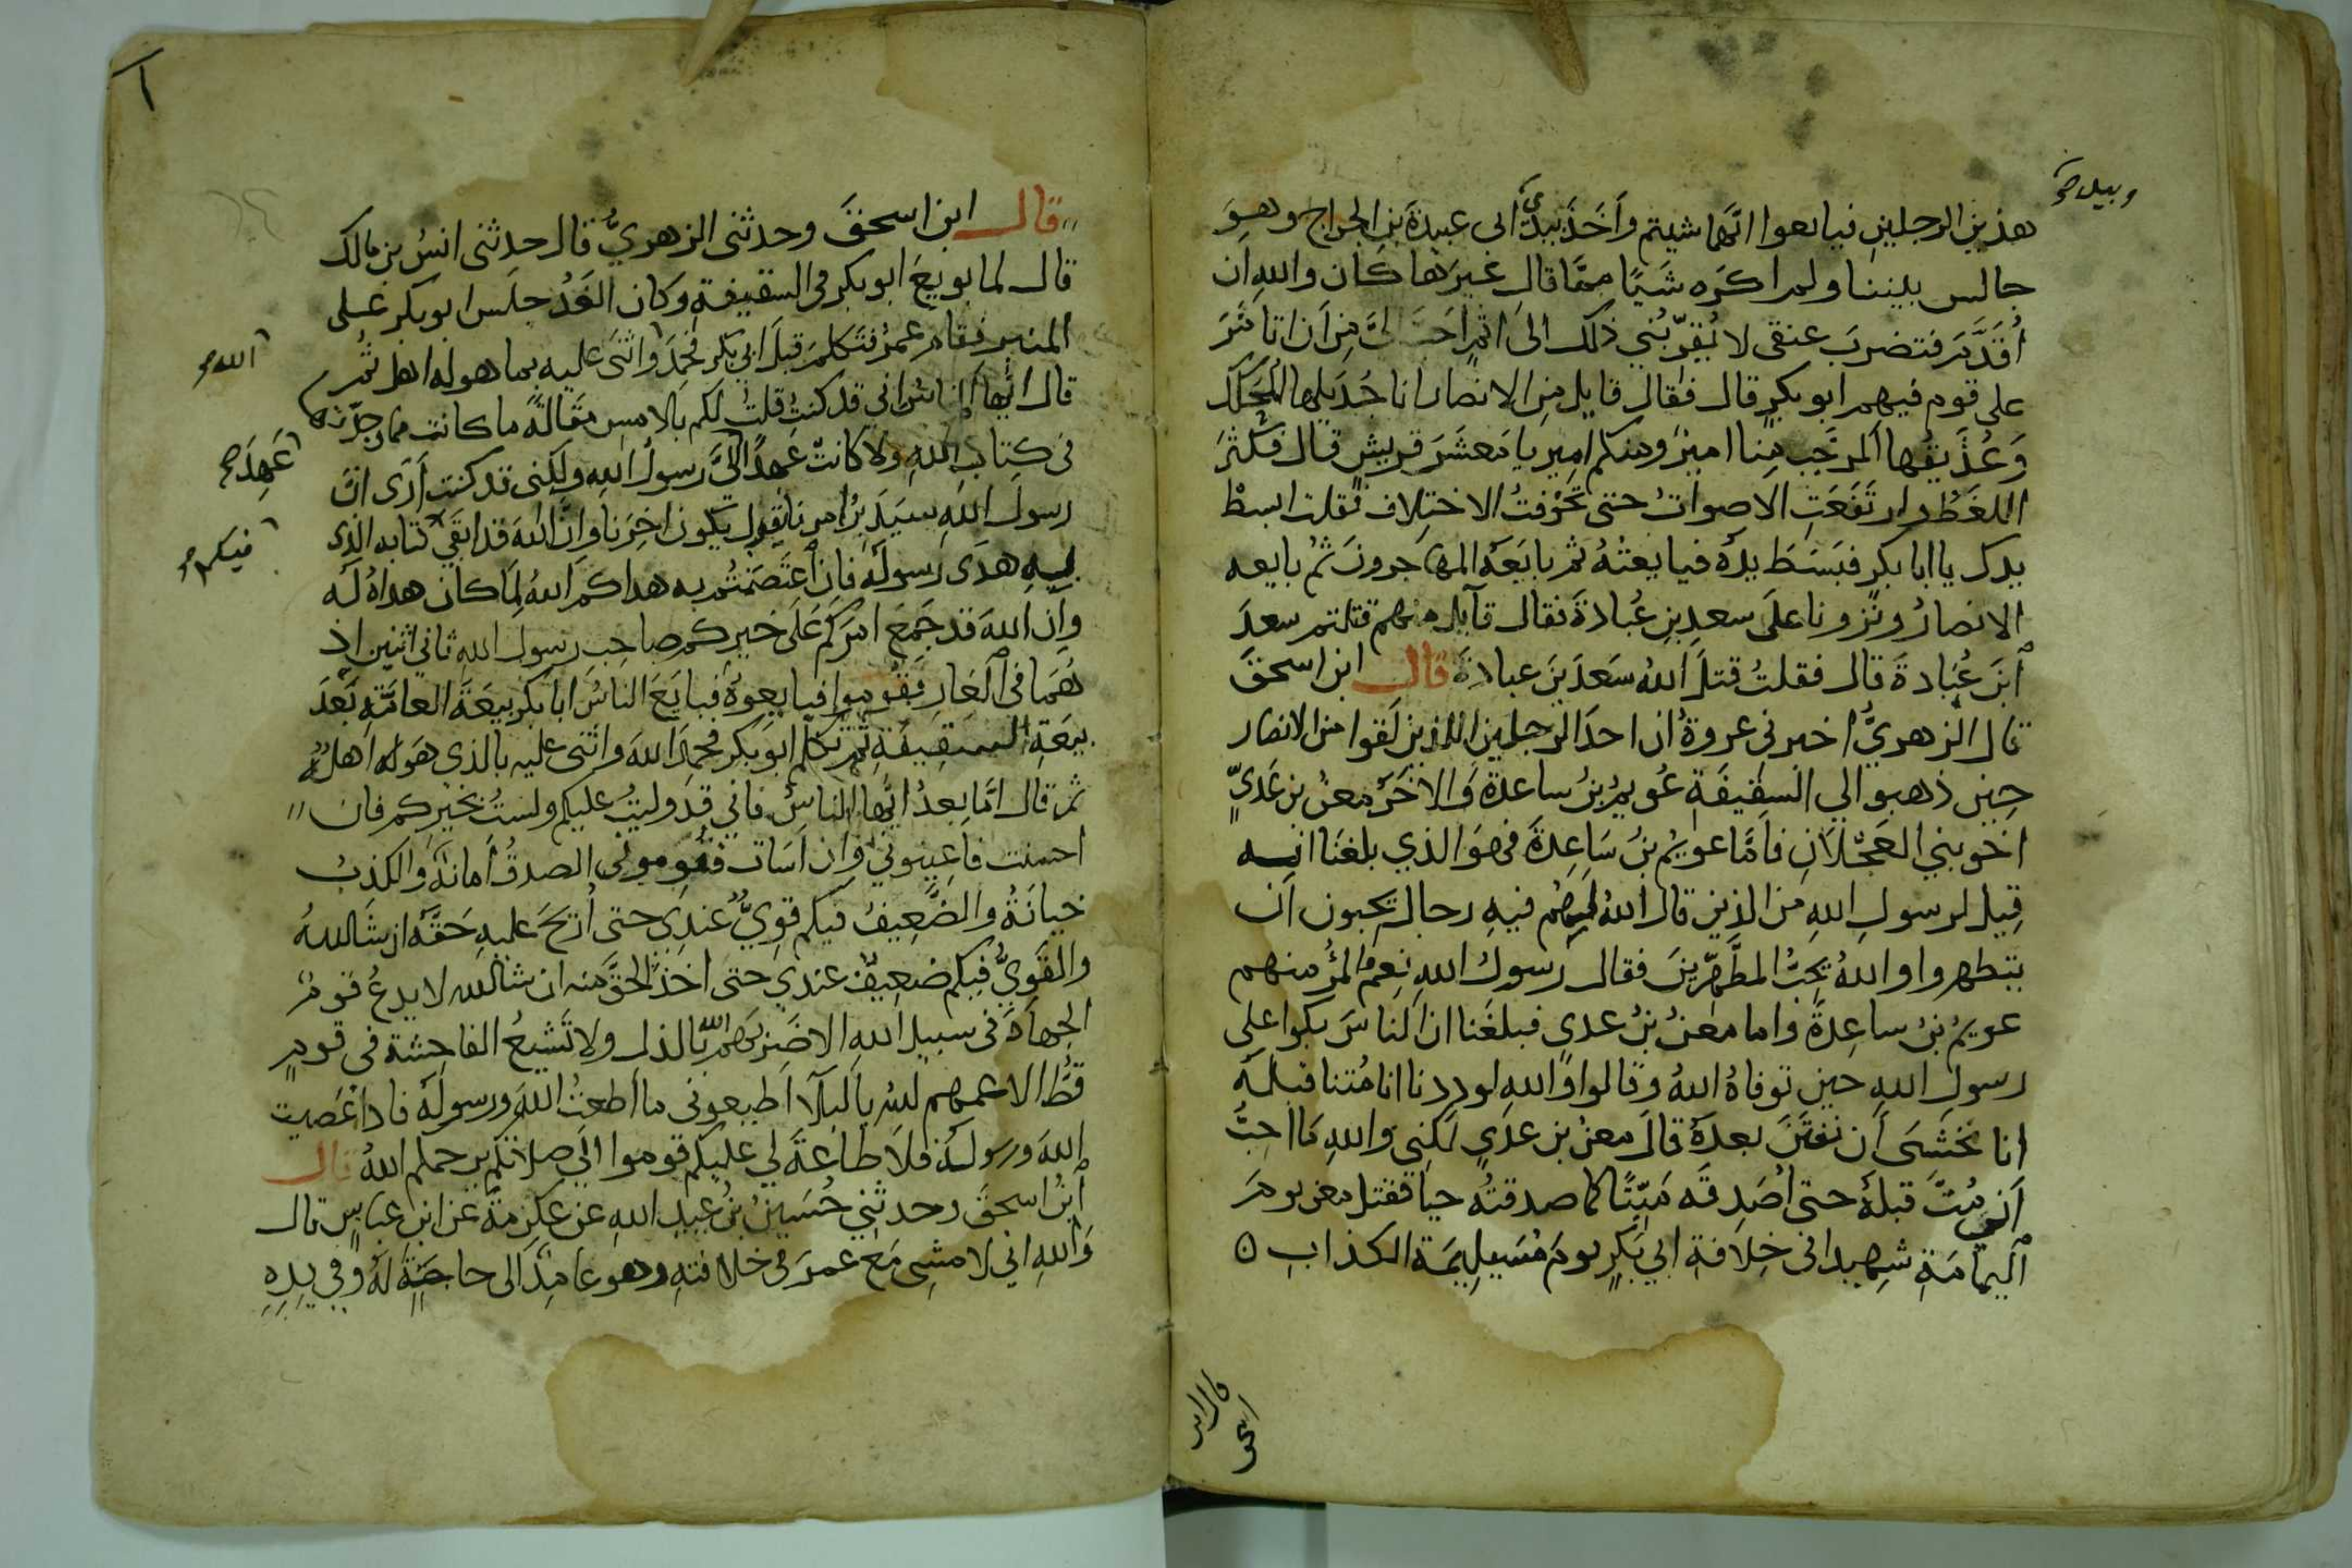 وبيد صح
هذين الرجلين فبايعوا ايّهما شيتم وَاَخَذَ بيدي الى عبيدة بنِ الجراح وهوَ
جالس بيننا ولمر اكرَه شَيًا ممَّا قال غيرَها كان والله ان
اُقَدَّمَ فتضربَ عنقى لا يُقرّبُني ذلك الىَ اثم احبّ الىَّ مِن اَن اتا مَّرَ
على قوم فيهم ابو بكرٍ قال فقال قايل مِنَ الانصار انا جُذيلها المحَكَّك
وَعُذَيقُها المرجَّب مِنا اميرٌ ومنكم امير يا مَعشَرَ قريش قال فكثرَ
اللغَطُ وارتَفَعَتِ الاصواتُ حتى تخوّفتُ الاختلاف فقلت ابسطْ
يدك يا ابا بكرٍ فبَسَطَ يدَه فبايعتُهُ ثم بايَعَه المهاجرونَ ثمُ بايعه
الانصارُ ونزونا علىَ سعدِ بنِ عُبادَةَ فقال قآيل منهم قتلتم سعدَ
ابنَ عُبَادةَ قال فقلتُ قتلَ اللهُ سَعدَ بنَ عبادةَ قال ابن اسحقَ
قال الزهريُّ اخبرنى عروةُ ان احدَ الرجلينِ اللذينِ لَقوا من الانصار
حِينَ ذهبوا الي السقِيفَةِ عُويمُ بنُ ساعدةَ وَالاخَرُ معنُ بن عَديٍّ
اخو بني العَجْلَانِ فاَمَّا عويمُ بنُ سَاعِدةَ فهوَ الذي بلغنَا انه
قِيل لرسولِ اللهِ مَن الذين قال اللهُ لهم فيهِ رجال يحبون اَن
يتطهروا واللهُ يحِبُّ المطَّهّرينَ فقال رسولُ اللهِ نِعمَ المرُ منهم
عويمُ بنُ ساعِدةَ واما معنُ بنُ عدي فبلغَنا ان الناسَ بكوا على
رسولِ اللهِ حين توفاهُ اللهُ وقالوا وَاللهِ لوددنا انا مُتنا قبلَه
انا نخشَى اَن نفتَنَ بعدَهُ قالَ معنُ بن عدي لكنى واللهِ مَا احِبُّ
اَني مُتُّ قبلهُ حتى اُصَدِقَه مَيّتًا كما صدقتُه حيا فقتل معن يومَ
اليمامَةِ شهيدا فى خِلاَفةِ ابي بَكرٍ يومَ مُسَيلِيمَة الكذابِ ه
قال ابن
اسحق
قال ابن اسحقَ وحدثنى الزهريُّ قال حدثنى انسُ بن مالك
قال لما بويعَ ابو بكر في السقيفةِ وكان الغَدُ جلَس ابو بكر على
المنبر فقام عمرُ فتَكلمَ قبلَ ابي بكر فحمِدَ واثنَى عليه بما هو له اهل ثمر
اللهَ صح
قال ايُّها الناسُ انى قد كنتُ قلتُ لكم بالامسِ مقَالةً ما كانت مما وجدتها
فى كِتابِ اللهِ ولا كانتْ عَهدًا الىَّ رسولُ اللهِ ولكنى قد كنتُ اَرَى انَّ
عَهِدَ صح
رسولَ اللهِ سيَدَبّرُ امرنا يقول يكون اخِرَنا وانَّ اللهَ قد ابقَى كتابه الذى
فيكم صح
بِهِ هدَى رسولَه فانِ اعتَصَمتُم به هداكم اللهُ لِمَا كان هداهُ لَه
وان اللهَ قد جَمَعَ امرَكم علَى خيركم صاحِب رسول الله ثاني اثنين اذ
هُمَا فى الغَارِ فَقُوموا فبايعوهُ فبايَعَ الناسُ ابا بكر بيعَةَ العامَّةِ بَعدَ
بيعَةِ السقِيفَةِ ثم تكلم ابو بكر فحمِدَ اللهَ واثنى عليه بالذى هوَ له اهلهُ
ثم قال امَّا بعدُ ايُّها الناسُ فاني قد وليتُ عليكم ولستُ بخيركم فان
احسنت فاعينوني وان اسَات فقوِمونى الصدقُ اَمانَةُ والكذبُ
خيانَةُ والضَّعيفُ فيكم قوِيٌّ عندي حتى اُزيحَ عليهِ حَقَّه ان شَالله
والقَوِيُّ فيكم ضعيفٌ عندي حتى اخذَ الحقَّ منه ان شا الله لا يدعُ قومٌ
الجهادَ فى سبيل الله الا ضربَهمُ اللهُ بالذل ولا تَشيعُ الفاحِشة فى قومٍ
قطُّ الا عمهم للهُ بالبلآ اطيعونى ما اَطعتُ اللهَ ورسولَه فاذا عَصَيت
اللهَ ورسولَهُ فلَا طاعةَ لي عليكم قوموا الَى صلاتكم يرحمكم اللهُ قال
ابنُ اسحقَ وحدثني حُسَينُ بنُ عبيد اللهِ عَن عكرِمَة عَن ابنِ عباسٍ قال
وَاللهِ اني لامشِى مَعَ عمرَ في خلافتهِ وهو عامِدٌ الى حاجَةٍ لهُ وفي يدِهِ